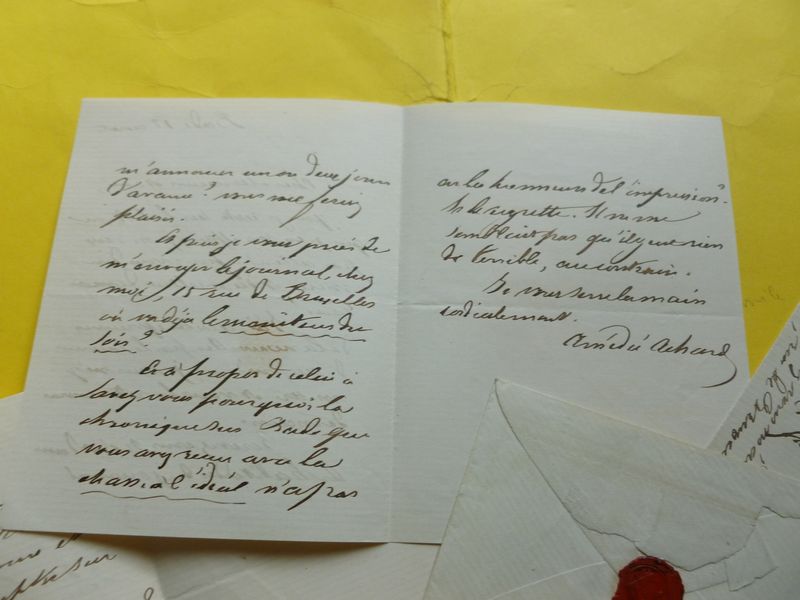 m'annoncer un ou deux jours
d'avance? vous me feriez
plaisir.
Et puis je vous prierais de
m'envoyer le journal, chez
moi, 15 rue de Bruxelles
où va déjà le moniteur du
soir?
Et à propos de celui-là
savez vous pourquoi la
chronique sur Bade que
vous avez reçue avec la
chasse à l'idéal n'a pas
eu les honneurs de l'impression?
Je la regrette. Il ne me
semblait pas qu'il y eut rien
de terrible, au contraire.
Je vous serre la main
cordialement.
Amédée Achard